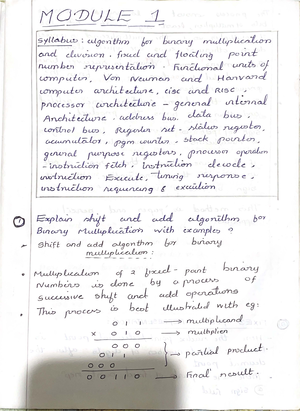 MODULE 1
Syllabus: algorithm for binary multiplication
and division. fixed and floating point
number representation. Functional units of
computer, Von Neuman and Harvard
computer architecture, CISC and RISC,
processor architecture - general internal
Architecture. address bus, data bus,
control bus, Register set - status register,
accumulator, pgm counter - stack pointer,
general purpose registers. processor operation
- instruction fetch, instruction decode,
instruction Execute, timing response,
instruction sequencing & execution
① Explain shift and add algorithm for
Binary Multiplication with examples?
- Shift and add algorithm for binary
multiplication:
Multiplication of 2 fixed-point binary
Numbers is done by a process of
successive shift and add operations
This process is best illustrated with eg:
0 1 1 → multiplicand
× 0 1 0 → multiplier
0 0 0
0 1 1 → partial product.
0 0 0
0 0 1 1 0 → Final result.